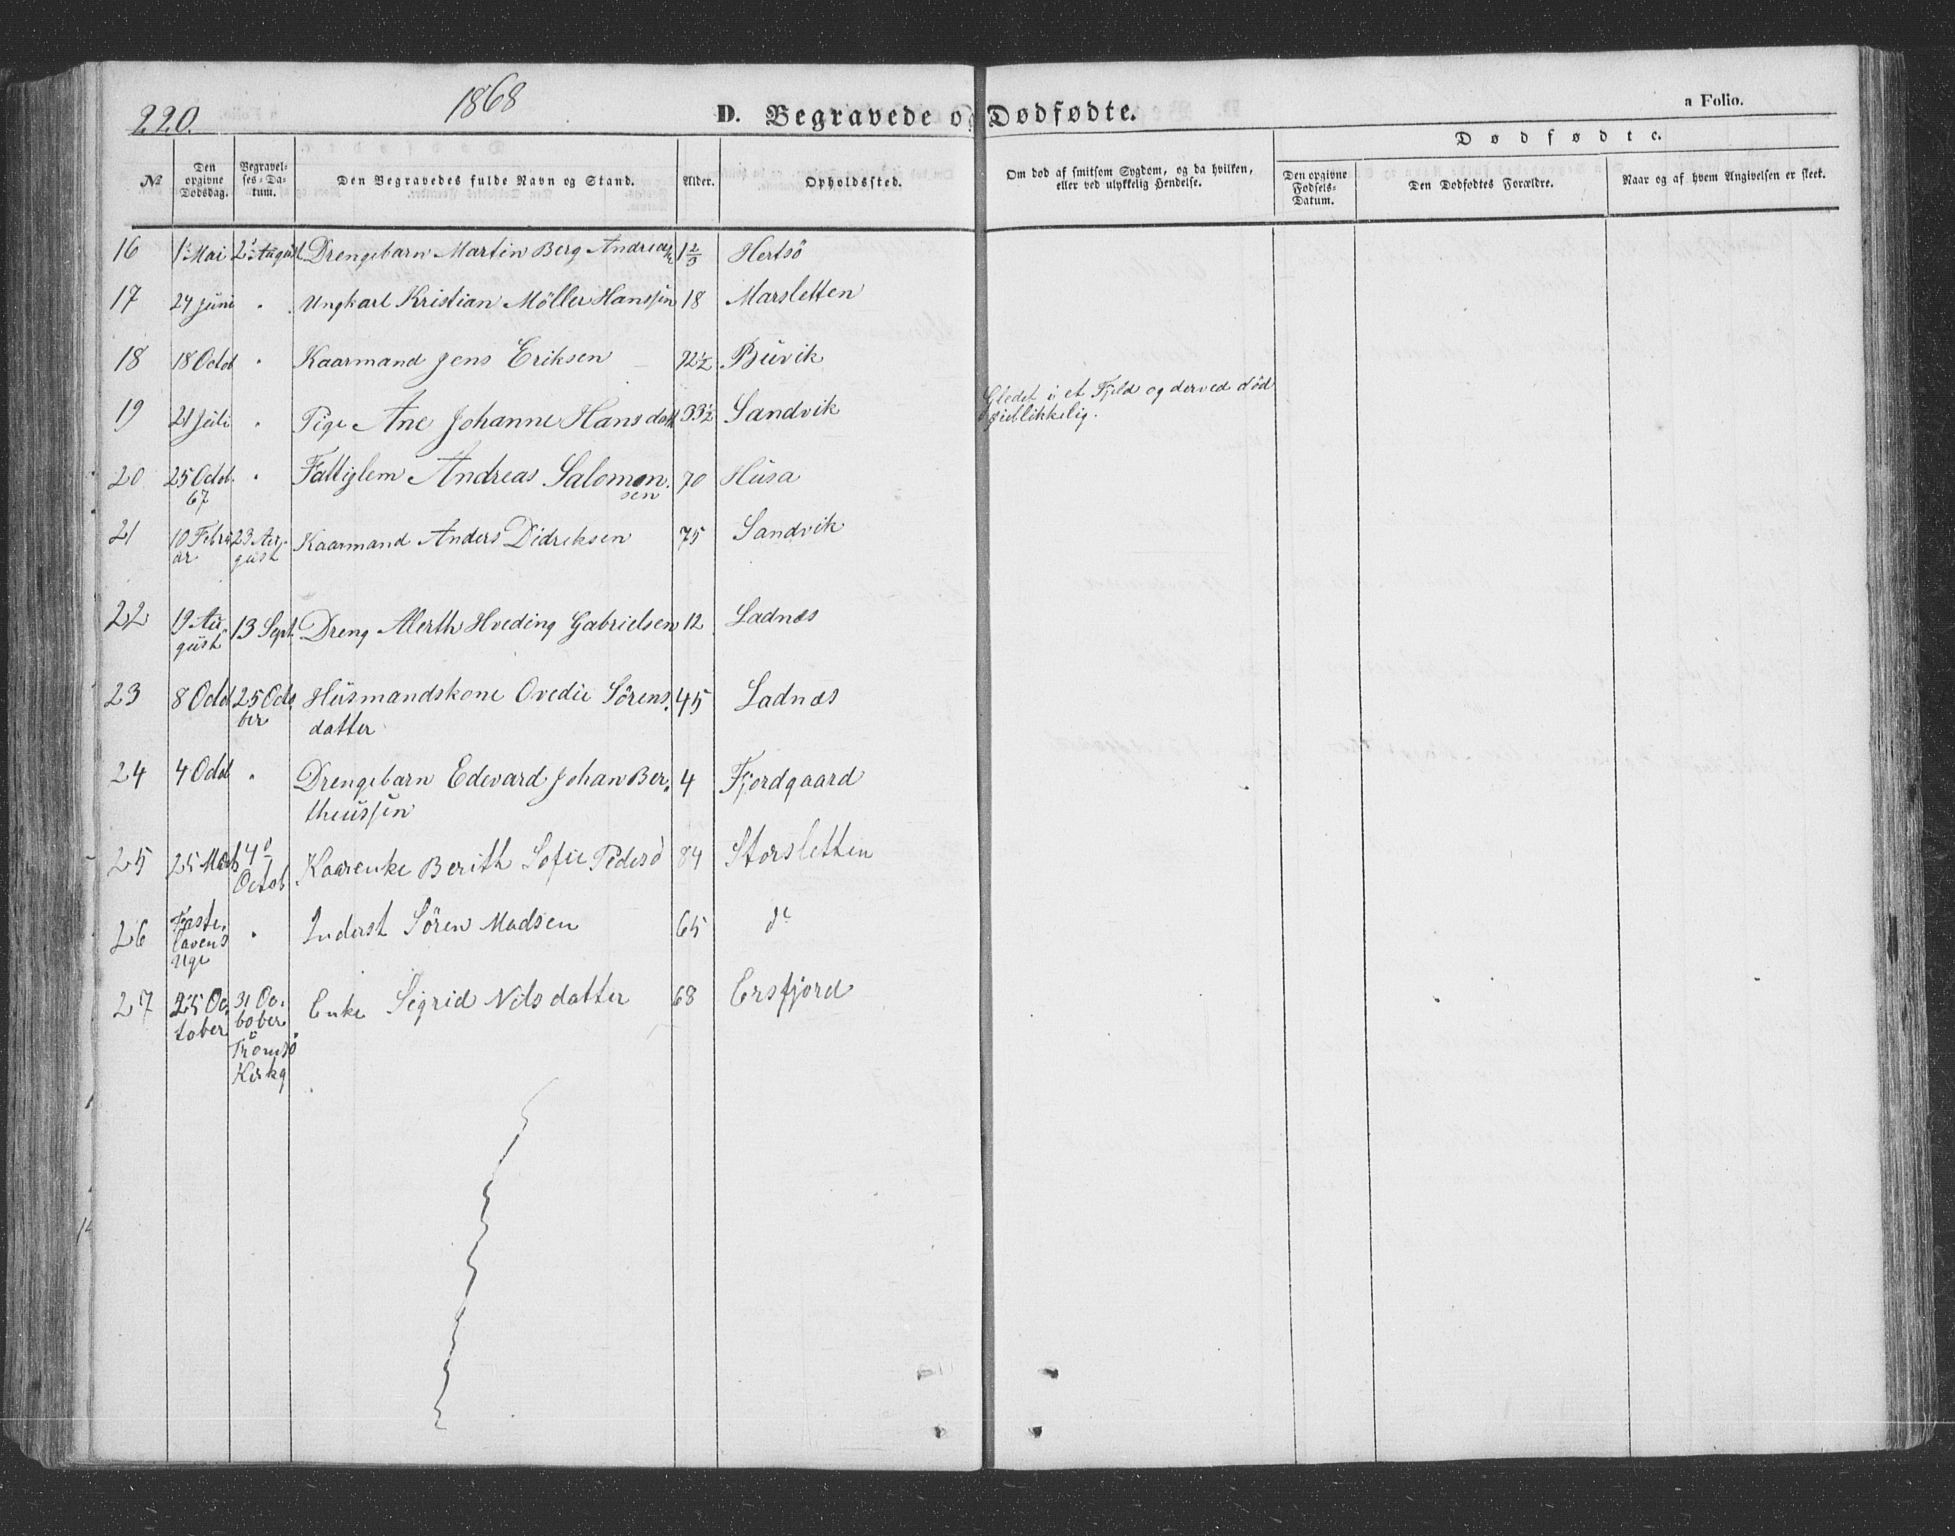 220.
1868
D. Begravede og Dødfødte.
a Folio.
Dødfødte.
No
Den opgivne Dødsdag.
Begravelses-Datum.
Den Begravedes fulde Navn og Stand.
Alder.
Opholdssted.
Om død af smitsom Sygdom, og da hvilken, eller ved ulykkelig Hendelse.
Den opgivne Fødsels-Datum.
Den Dødfødtes Forældre.
Naar og af hvem Angivelsen er skeet.
16 1 Mai 2 August Drengebarn Martin Berg Andreas 1 2/3 Hertsö
17 24 Juni " Ungkarl Kristian Möller Hanssen 18 Marsletten
18 18 Octob " Kaarmand Jens Eriksen 72½ Buvik
19 21 Juli " Pige Ane Johanne Hansdatt 33½ Sandvik Gledet i et Fjeld og derved död
öieblikkelig.
20 25 Octob. " Fattiglem Andreas Salomon 70 Husa
67 sen
21 10 Febru 23 Au- Kaarmand Anders Didriksen 75 Sandvik
ar gust
22 19 Au- 13 Sept. Dreng Alerth Hveding Gabrielsen 12 Ladnæs
gust
23 8 Octob 25 Octo Husmandskone Ovedie Sörens 45 Ladnæs
ber datter
24 4 Octob " Drengebarn Edevard Johan Ber- 4 Fjordgaard
theussen
25 25 Marts 4 Kaarenke Berith Sofie Pedersd 84 Storsletten
Octob.
26 Faste- " Inderst Sören Madsen 65 do
lavens
Uge
27 25 Oc- 31 Oc- Enke Sigrid Nilsdatter 68 Ersfjord
tober tober
Tromsö
Kirkg